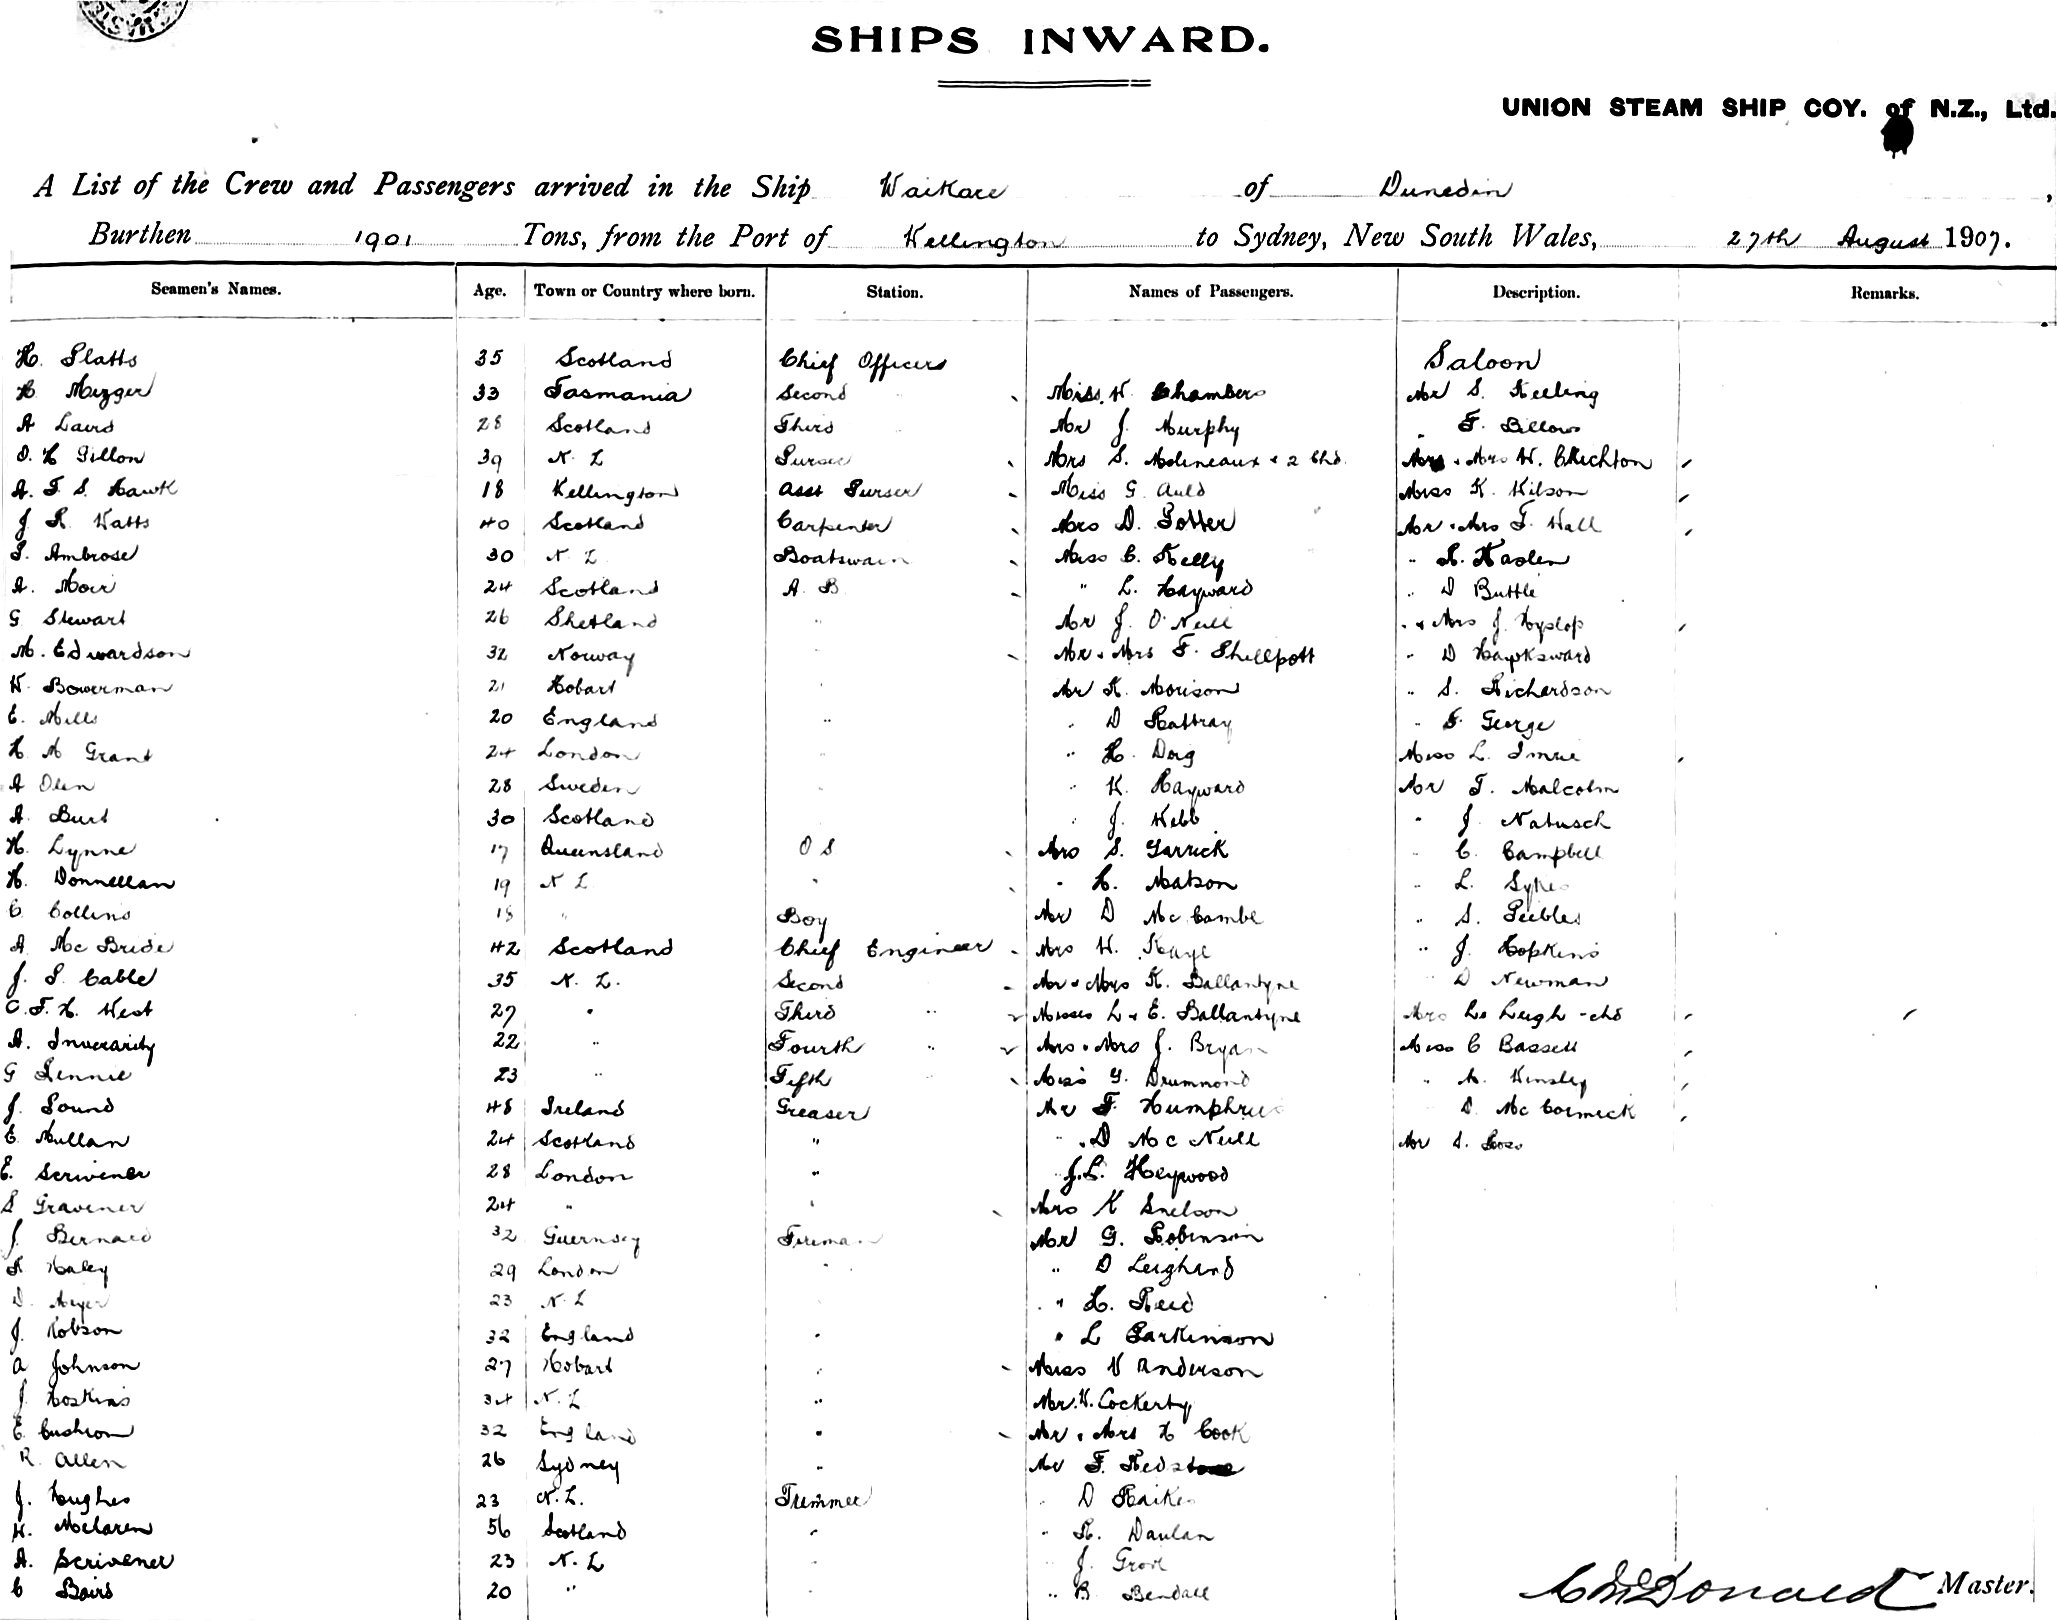 SHIPS INWARD.
UNION STEAM SHIP COY. of N.Z., Ltd.
A List of the Crew and Passengers arrived in the Ship Waikare of Dunedin,
Burthen 1901 Tons, from the Port of Wellington to Sydney, New South Wales, 27th August 1907.
Seamen's Names. Age. Town or Country where born. Station. Names of Passengers. Description. Remarks.
H. Platts 35 Scotland Chief Officer Saloon
H. Mezger 33 Tasmania Second Miss. W Chambers Mr S. Keeling
A Laird 28 Scotland Third Mr J. Murphy " F. Billows
D. H Dillon 39 N Z Purser Mrs S. Molineaux & 2 Chd. Mr & Mrs W. Chrichton
A. F. S. Hawk 18 Wellington Asst Purser Miss G Auld Miss K. Wilson
J R Watts 40 Scotland Carpenter Mrs D. Potter Mr & Mrs T. Hall
P. Ambrose 30 N Z Boatswain Miss C. Kelly " R. Haslen
A. Moir 24 Scotland A. B " L. Hayward " D Buttle
G Stewart 26 Shetland " Mr J. O'Neill " & Mrs J. Hyslop
M. Edwardson 32 Norway " Mr & Mrs F. Shellpott " D Hawksward
W. Bowerman 21 Hobart " Mr K. Morison " S. Richardson
E. Mills 20 England " " D Rattray " F. George
H M Grant 24 London " " H. Doig Miss L. Imrie
A Olen 28 Sweden " " K. Hayward Mr T. Malcolm
A. Burt 30 Scotland " " J. Webb " J. Natusch
H. Lynne 17 Queensland O S Mrs S. Garrick " C. Campbell
H. Donnellan 19 N Z " " H. Matson " L. Sykes
C. Collins 18 " Boy Mr D McCombe " S. Peebles
A McBride 42 Scotland Chief Engineer Mrs W. Kaye " J. Hopkins
J. P. Cable 35 N. Z. Second Mr & Mrs K. Ballantyne " D Newman
C. F. H. West 27 " Third " Misses L & E. Ballantyne Mrs L. Leigh - chd
A. Inverarity 22 " Fourth " Mrs & Mrs J. Bryan Miss C Bassett
G Rennie 23 " Fifth Miss G. Drummond " M. Kinsley
J. Pound 48 Ireland Greaser Mr F. Humphries " D. McCormick
E. Mullan 24 Scotland " " D McNeill Mr S. Ross
E. Scrivener 28 London " " J. L. Heywood
S Gravener 24 " " Mrs K Snelson
J. Bernard 32 Guernsey Fireman Mr G. Robinson
R Haley 29 London " " D Leighard
D. Meyer 23 N. Z " " H. Reid
J. Robson 32 England " " L Parkinson
A Johnson 27 Hobart " Miss V Anderson
J Hoskins 34 N. Z " Mr. W. Cockerty
E. Cushion 32 England " Mr & Mrs H Cook
R. Allen 26 Sydney " Mr F. Redstone
J. Hughes 23 N. Z. Trimmer " D Raikes
W. McLaren 56 Scotland " " R. Daulan
A. Scrivener 23 N. Z " " J. Grove
C Baird 20 " " " B Bendall
C McDonald Master.